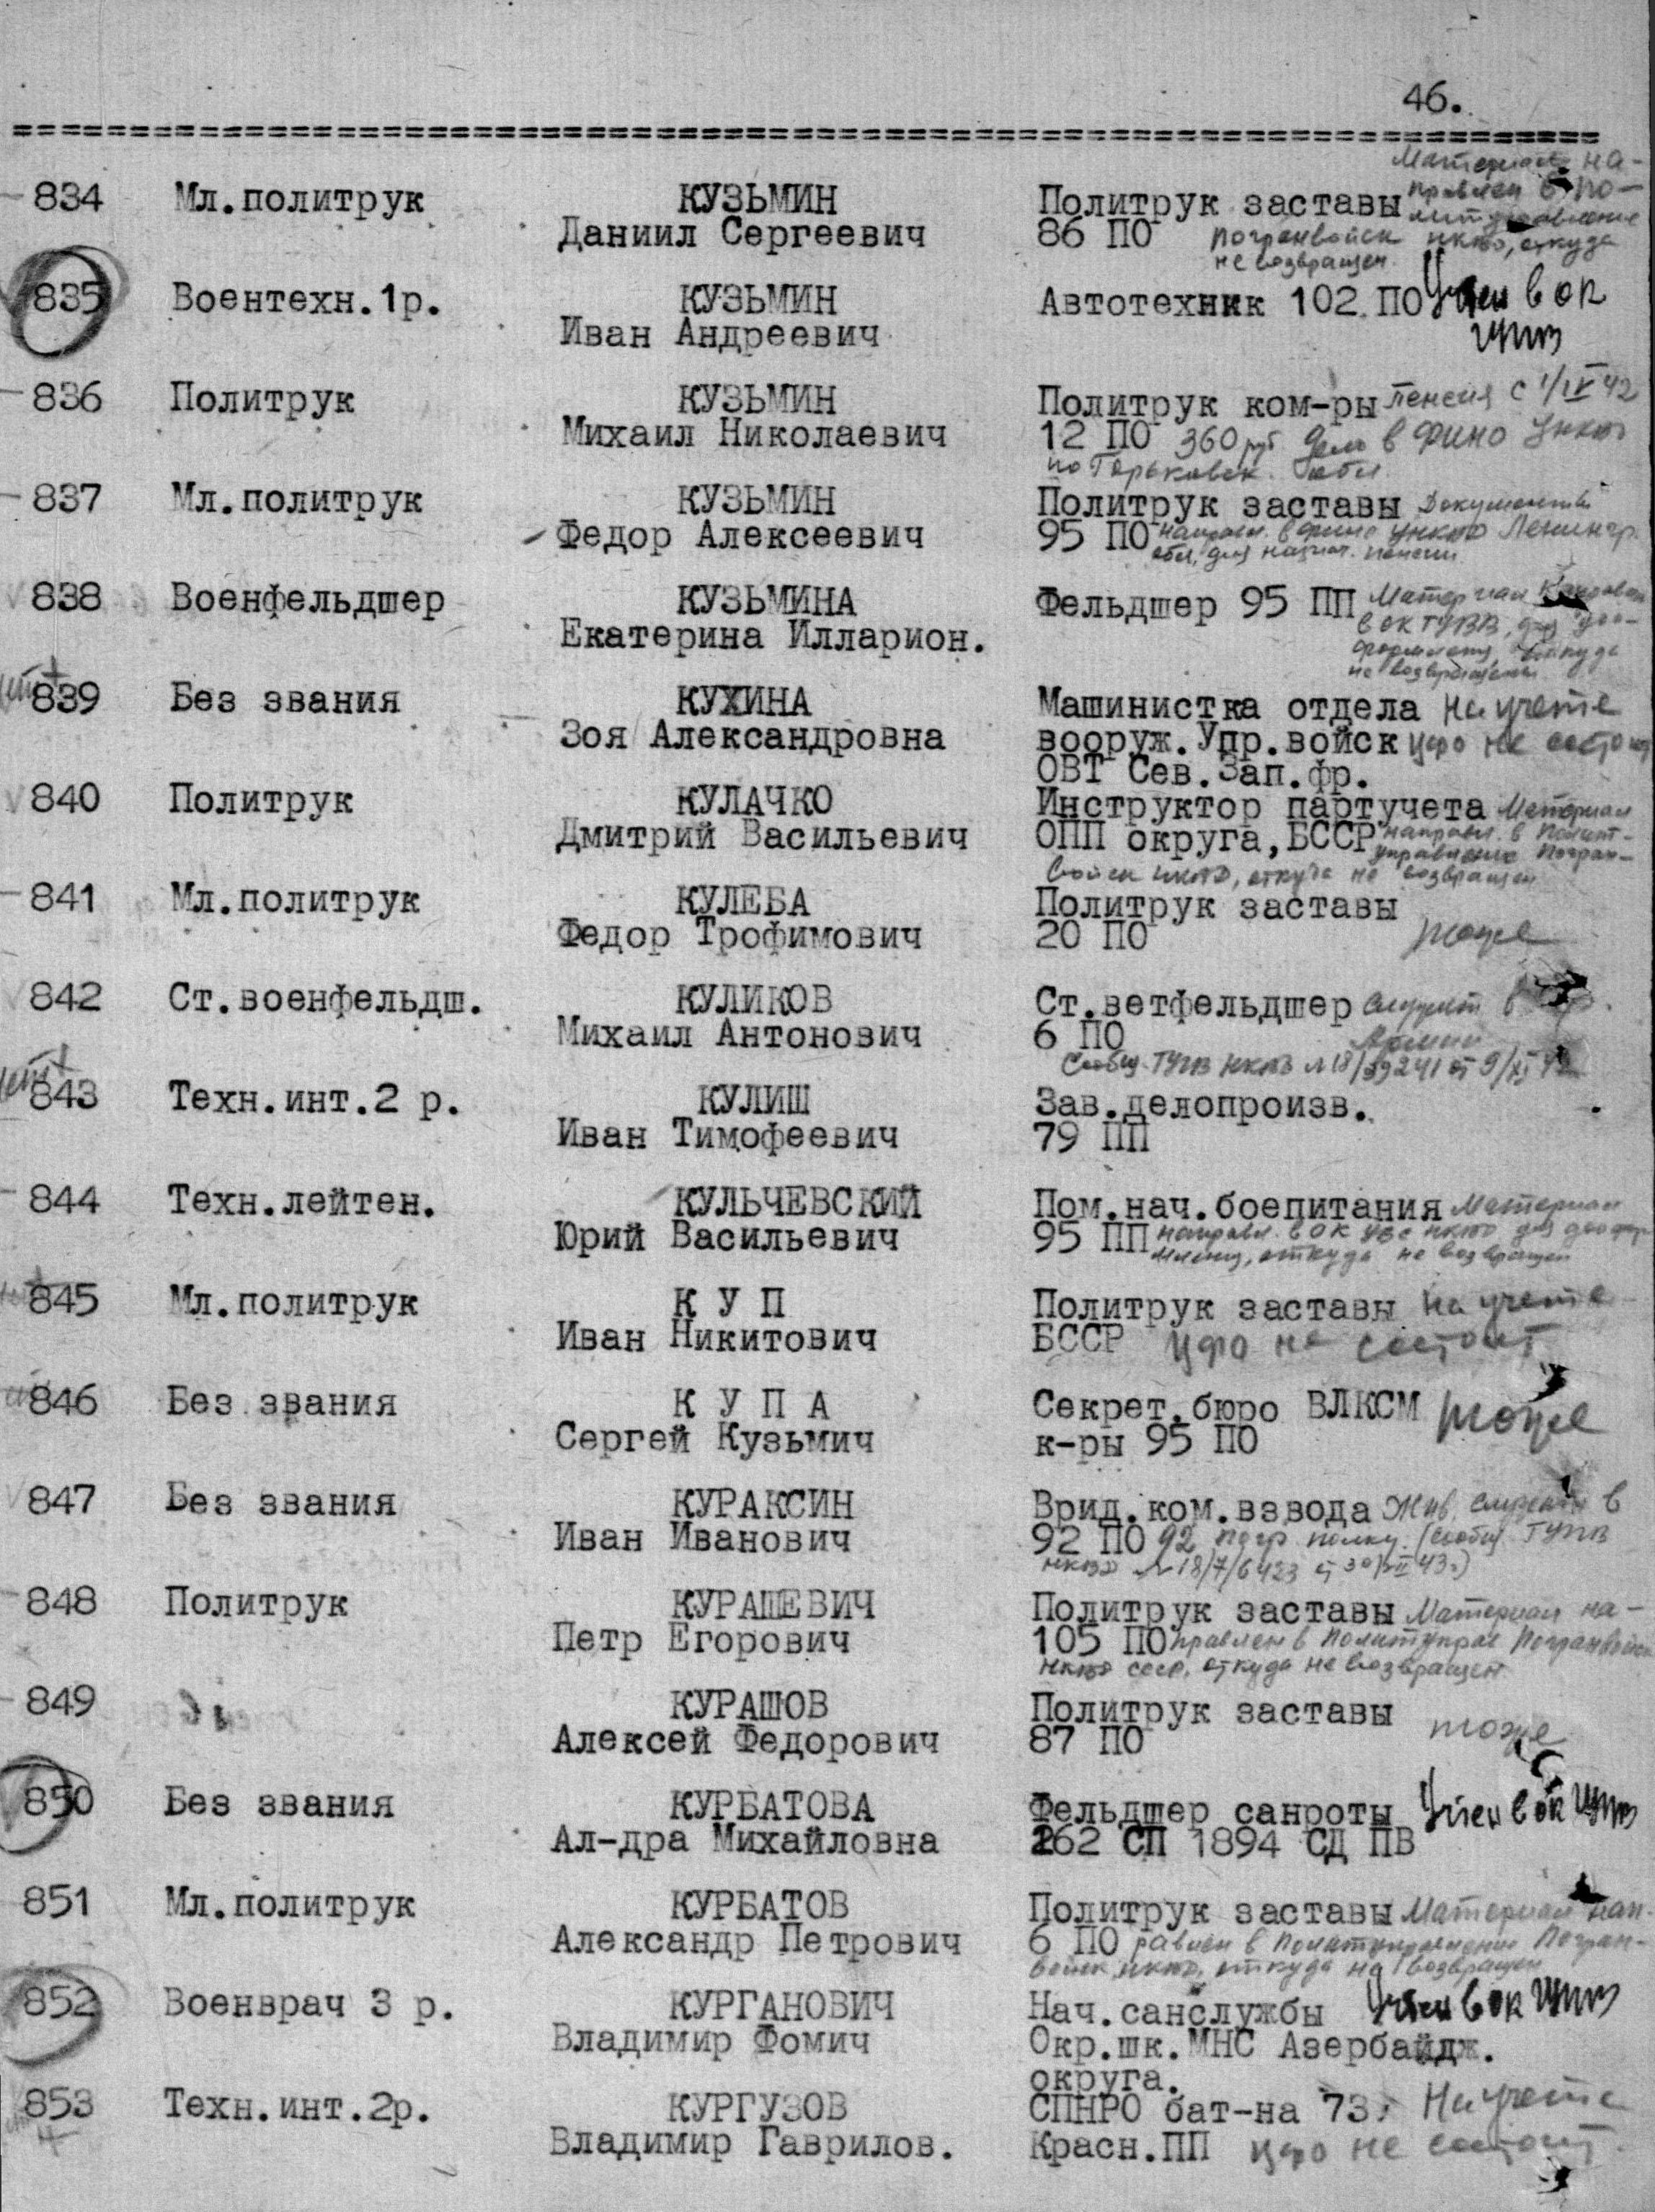 46.
834 Мл.политрук КУЗЬМИН Политрук заставы Материал на-
Даниил Сергеевич 86 ПО правлен в По-
литуправление
погранвойск НКВД, откуда
не возвращен.
835 Воентехн.1р. КУЗЬМИН Автотехник 102 ПО Учтен в ОК
Иван Андреевич
836 Политрук КУЗЬМИН Политрук ком-ры пенсия с 1/IV 42
Михаил Николаевич 12 ПО 360 руб дело в ФИНО УНКВД
по Горьковск. обл.
837 Мл.политрук КУЗЬМИН Политрук заставы Документы
Федор Алексеевич 95 ПО направл. в фино УНКВД Ленингр.
обл. для назнач. пенсии
838 Военфельдшер КУЗЬМИНА Фельдшер 95 ПП Материал
Екатерина Илларион. в ОК ГУВВ, для доо-
формления, откуда
не возвращены
839 Без звания КУХИНА Машинистка отдела На учете
Зоя Александровна вооруж.Упр.войск ЦФО не состоит
ОВТ Сев.Зап.фр.
840 Политрук КУЛАЧКО Инструктор партучета Материал
Дмитрий Васильевич ОПП округа,БССР направл. в Полит-
управление Погран-
войск НКВД, откуда не возвращен
841 Мл.политрук КУЛЕБА Политрук заставы
Федор Трофимович 20 ПО тоже
842 Ст.военфельдш. КУЛИКОВ Ст.ветфельдшер служит в
Михаил Антонович 6 ПО Армии
Сообщ. ГУПВ НКВД №18/39241 от 9/XI
843 Техн.инт.2 р. КУЛИШ Зав.делопроизв.
Иван Тимофеевич 79 ПП
844 Техн.лейтен. КУЛЬЧЕВСКИЙ Пом.нач.боепитания Материал
Юрий Васильевич 95 ПП направл. в ОК НКВД для дооформ
мления, откуда не возвращен
845 Мл.политрук К У П Политрук заставы На учете
Иван Никитович БССР ЦФО не состоит
846 Без звания К У П А Секрет.бюро ВЛКСМ тоже
Сергей Кузьмич к-ры 95 ПО
847 Без звания КУРАКСИН Врид.ком.взвода Жив, служит в
Иван Иванович 92 ПО 92 погр полку. (сообщ ГУПВ
НКВД №18/7/6423 от 30/XII 43г)
848 Политрук КУРАШЕВИЧ Политрук заставы Материал на-
Петр Егорович 105 ПО правлен в Политупрал Погранвойск
НКВД СССР, откуда не возвращен
849 КУРАШОВ Политрук заставы
Алексей Федорович 87 ПО тоже
850 Без звания КУРБАТОВА Фельдшер санроты Учтен в ОК
Ал-дра Михайловна 262 СП 1894 СД ПВ
851 Мл.политрук КУРБАТОВ Политрук заставы Материал нап-
Александр Петрович 6 ПО равлен в Политуправление Погран-
войск НКВД, откуда не возвращен
852 Военврач 3 р. КУРГАНОВИЧ Нач.санслужбы Учтен в ОК
Владимир Фомич Окр.шк.МНС Азербайдж.
округа.
853 Техн.инт.2р. КУРГУЗОВ СПНРО бат-на 73 На учете
Владимир Гаврилов. Красн.ПП ЦФО не состоит